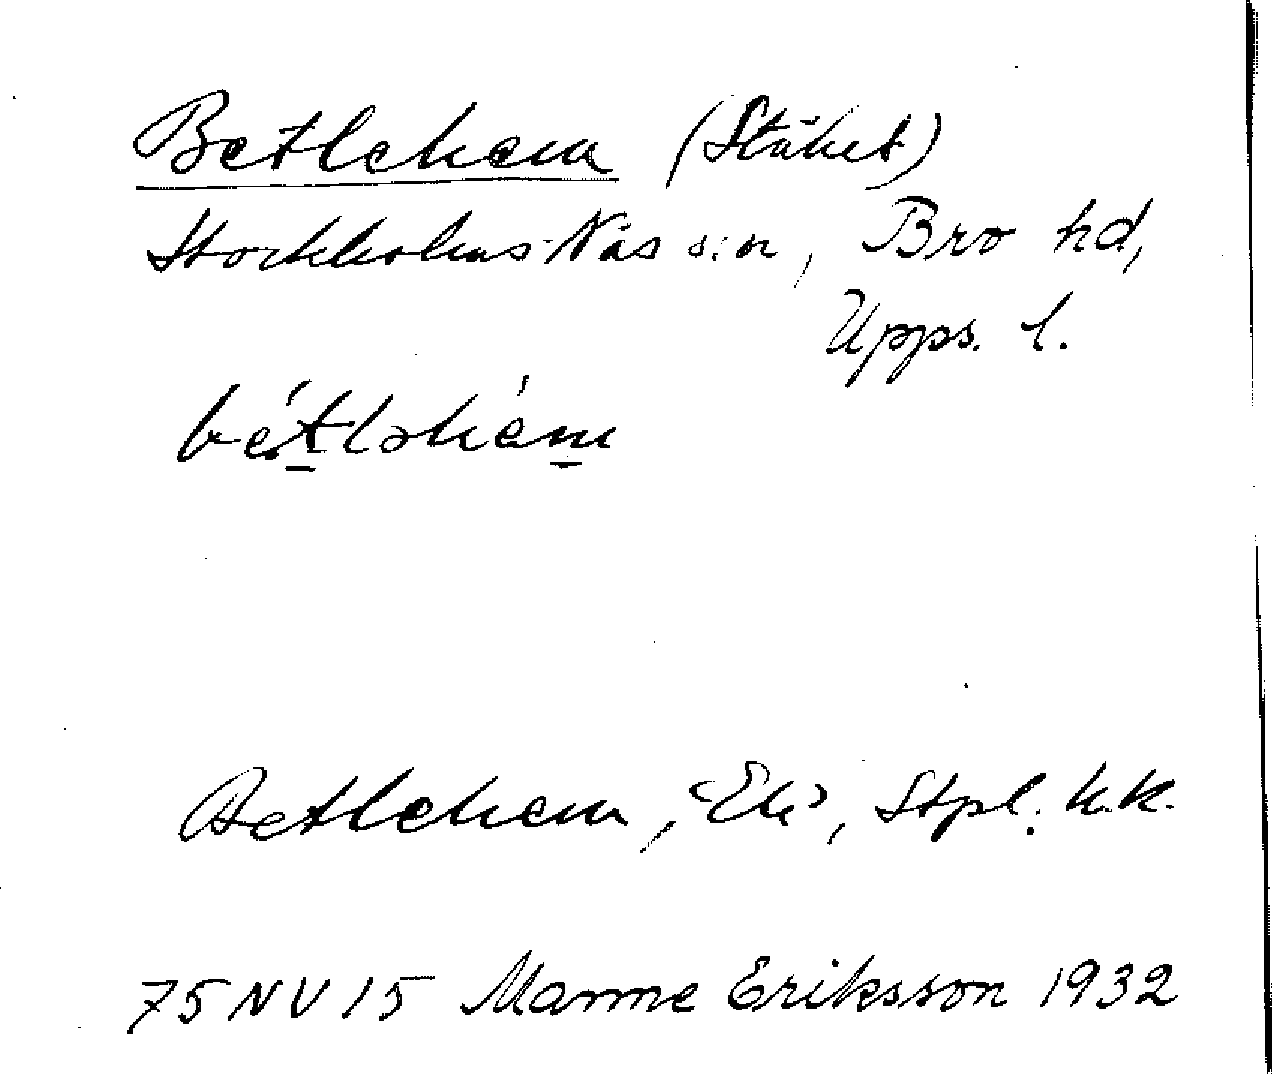 Betlehem (Stäket)
Stockholms-Näs s:n, Bro hd,
Upps. l.
bétləhém
Betlehem, ‹Ek›, Stpl. h.k.
75 NV 15 Manne Eriksson 1932